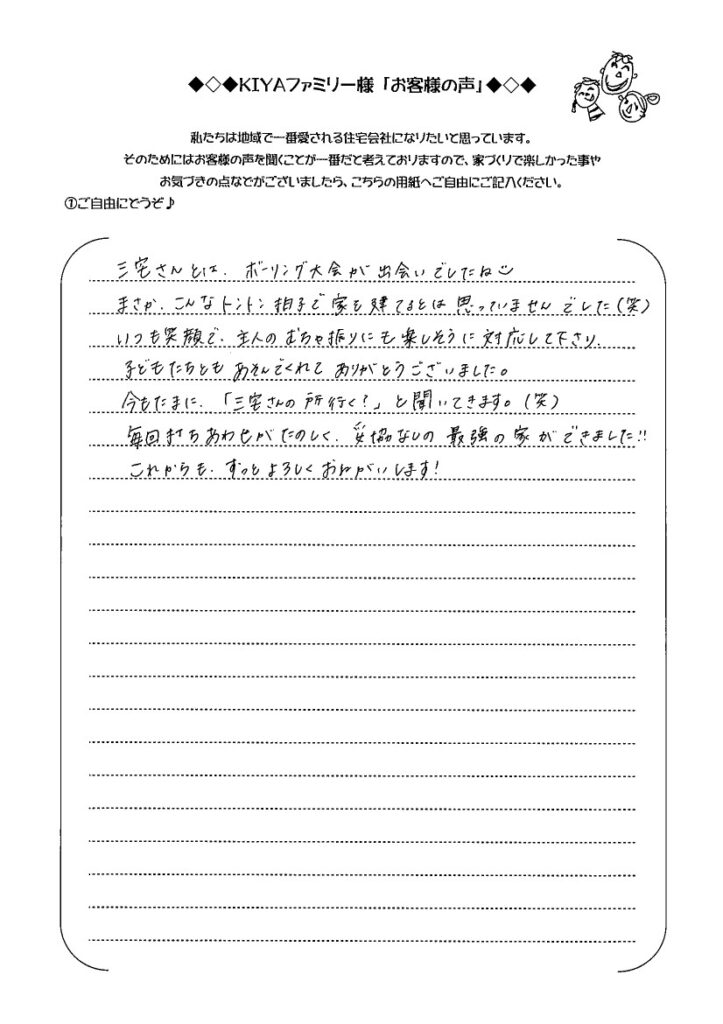 ◆◇◆KIYAファミリー様「お客様の声」◆◇◆
私たちは地域で一番愛される住宅会社になりたいと思っています。
そのためにはお客様の声を聞くことが一番だと考えておりますので、家づくりで楽しかった事や
お気づきの点などがございましたら、こちらの用紙へご自由にご記入ください。
①ご自由にどうぞ♪
三宅さんとは、ボーリング大会が出会いでしたね
まさか、こんなトントン拍子で家を建てるとは思っていませんでした(笑)
いつも笑顔で、主人のむちゃ振りにも楽しそうに対応して下さり、
子どもたちともあそんでくれてありがとうございました。
今もたまに、「三宅さんの所行く?」と聞いてきます。(笑)
毎回まちあわせがたのしく、妥協なしの最強の家ができました!!
これからも、ずっとよろしくおねがいします!